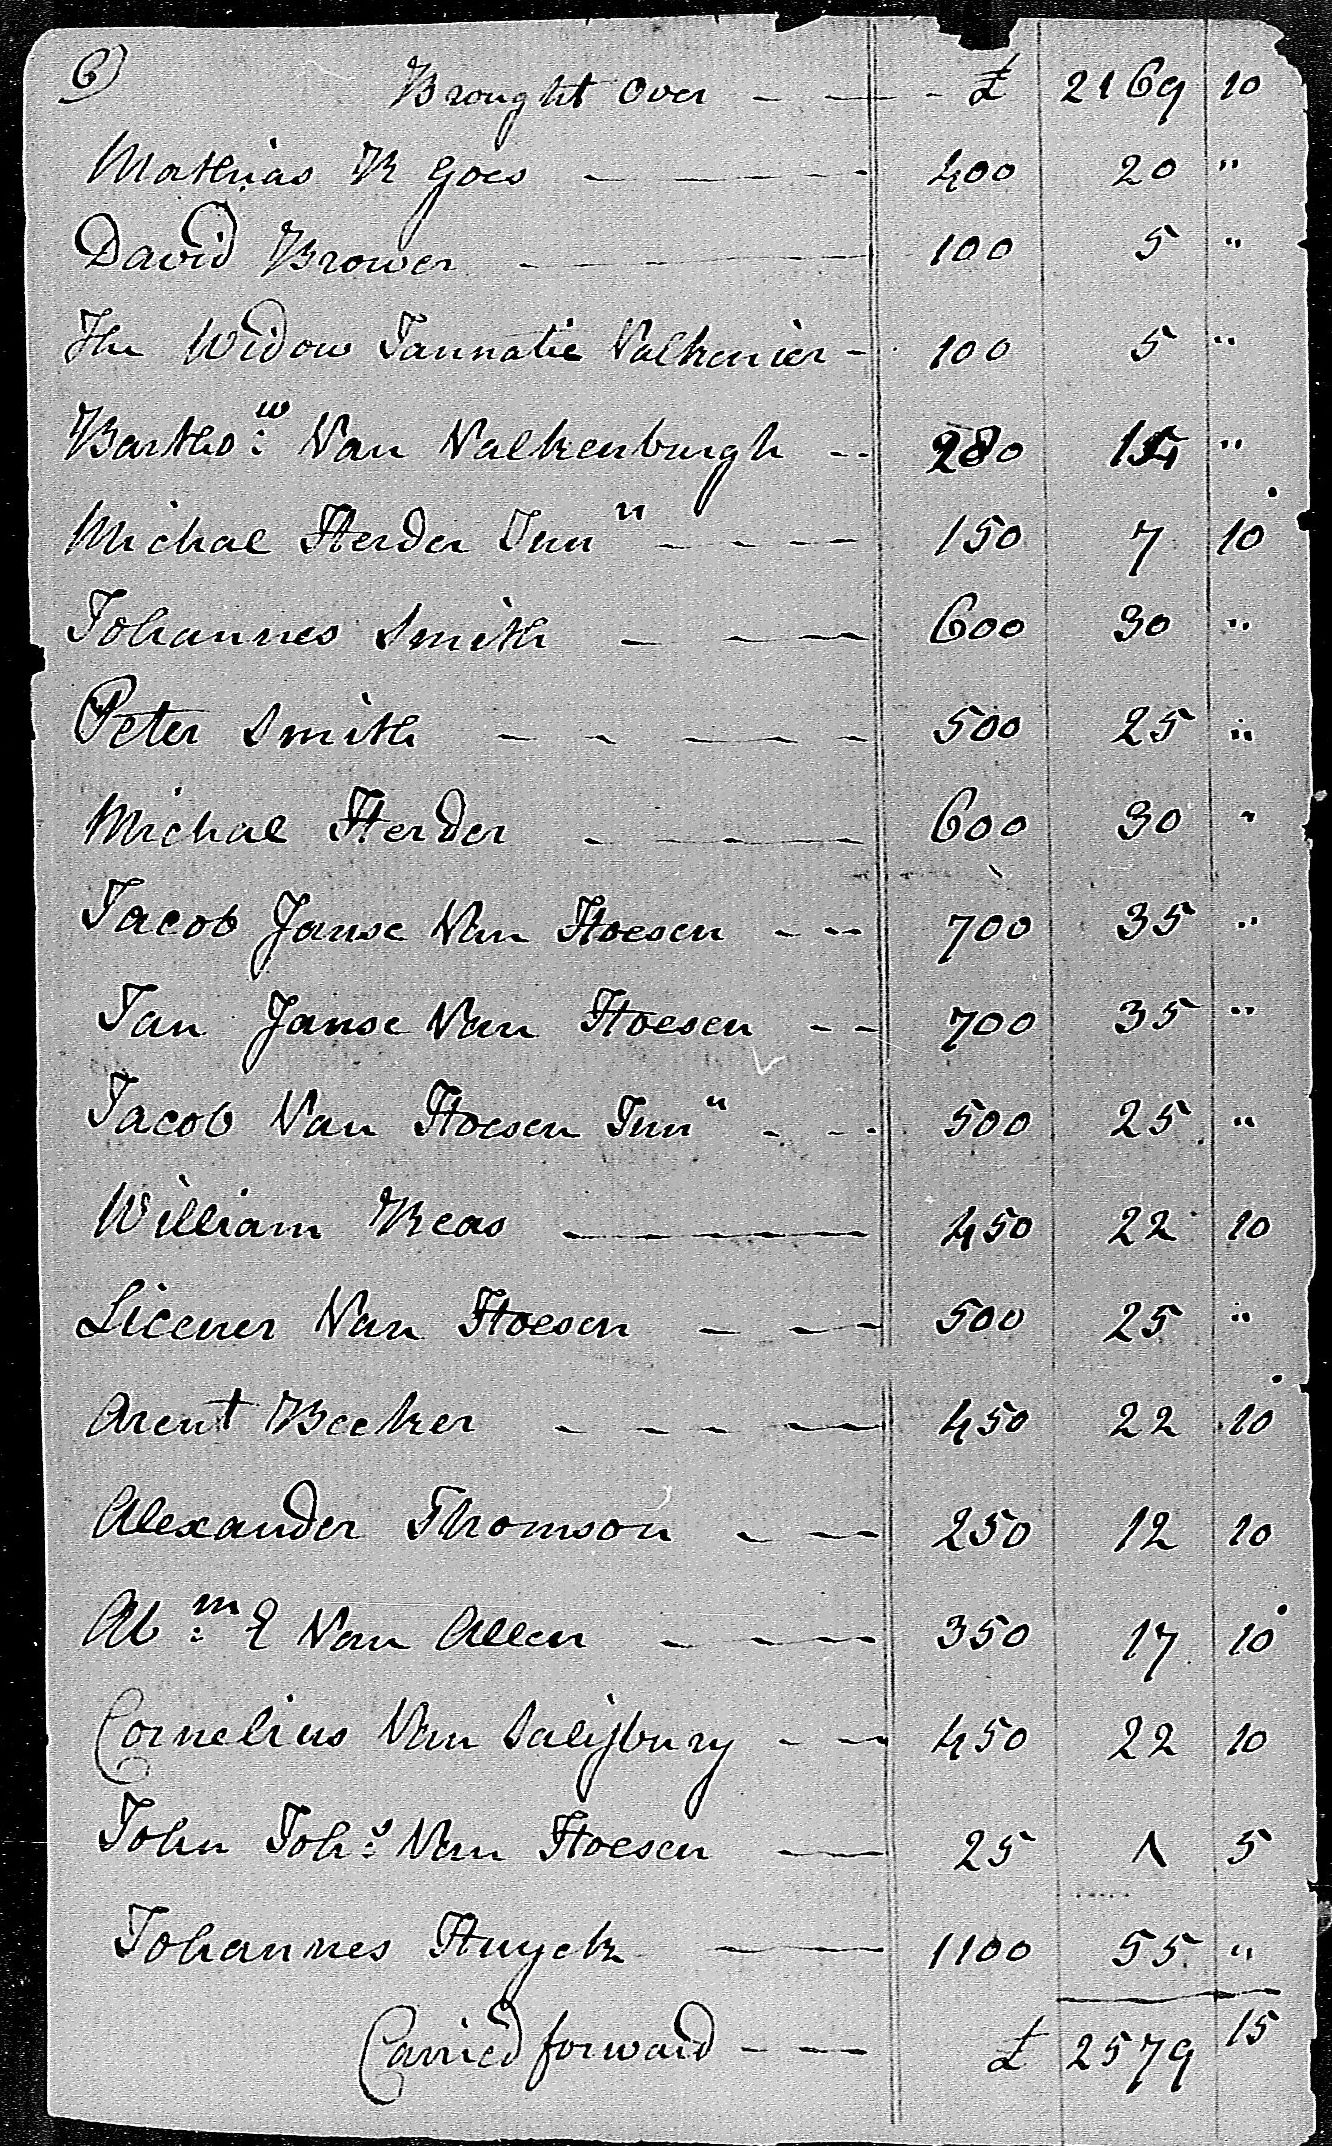 6)
Brought Over £ 2169 10
Mathias Goes 400 20 "
David Brower 100 5 "
The Widow Jannatie Valkenier 100 5 "
Bartho:w Van Valkenburgh 280 14 "
Michael Herder Junr 150 7 10
Johannes Smith 600 30 "
Peter Smith 500 25 "
Michal Herder 600 30 "
Jacob Janse Van Hoesen 700 35 "
Jan Janse Van Hoesen 700 35 "
Jacob Van Hoesen Junr 500 25 "
William 450 22 10
Licener Van Hoesen 500 25 "
Arent Becker 450 22 10
Alexander Thomson 250 12 10
Ab:m E Van Allen 350 17 10
Cornelius Van Salisbury 450 22 10
John Joh:s Van Hoesen 25 1 5
Johannes Huyck 1100 55 "
Carried forward £ 2579 15